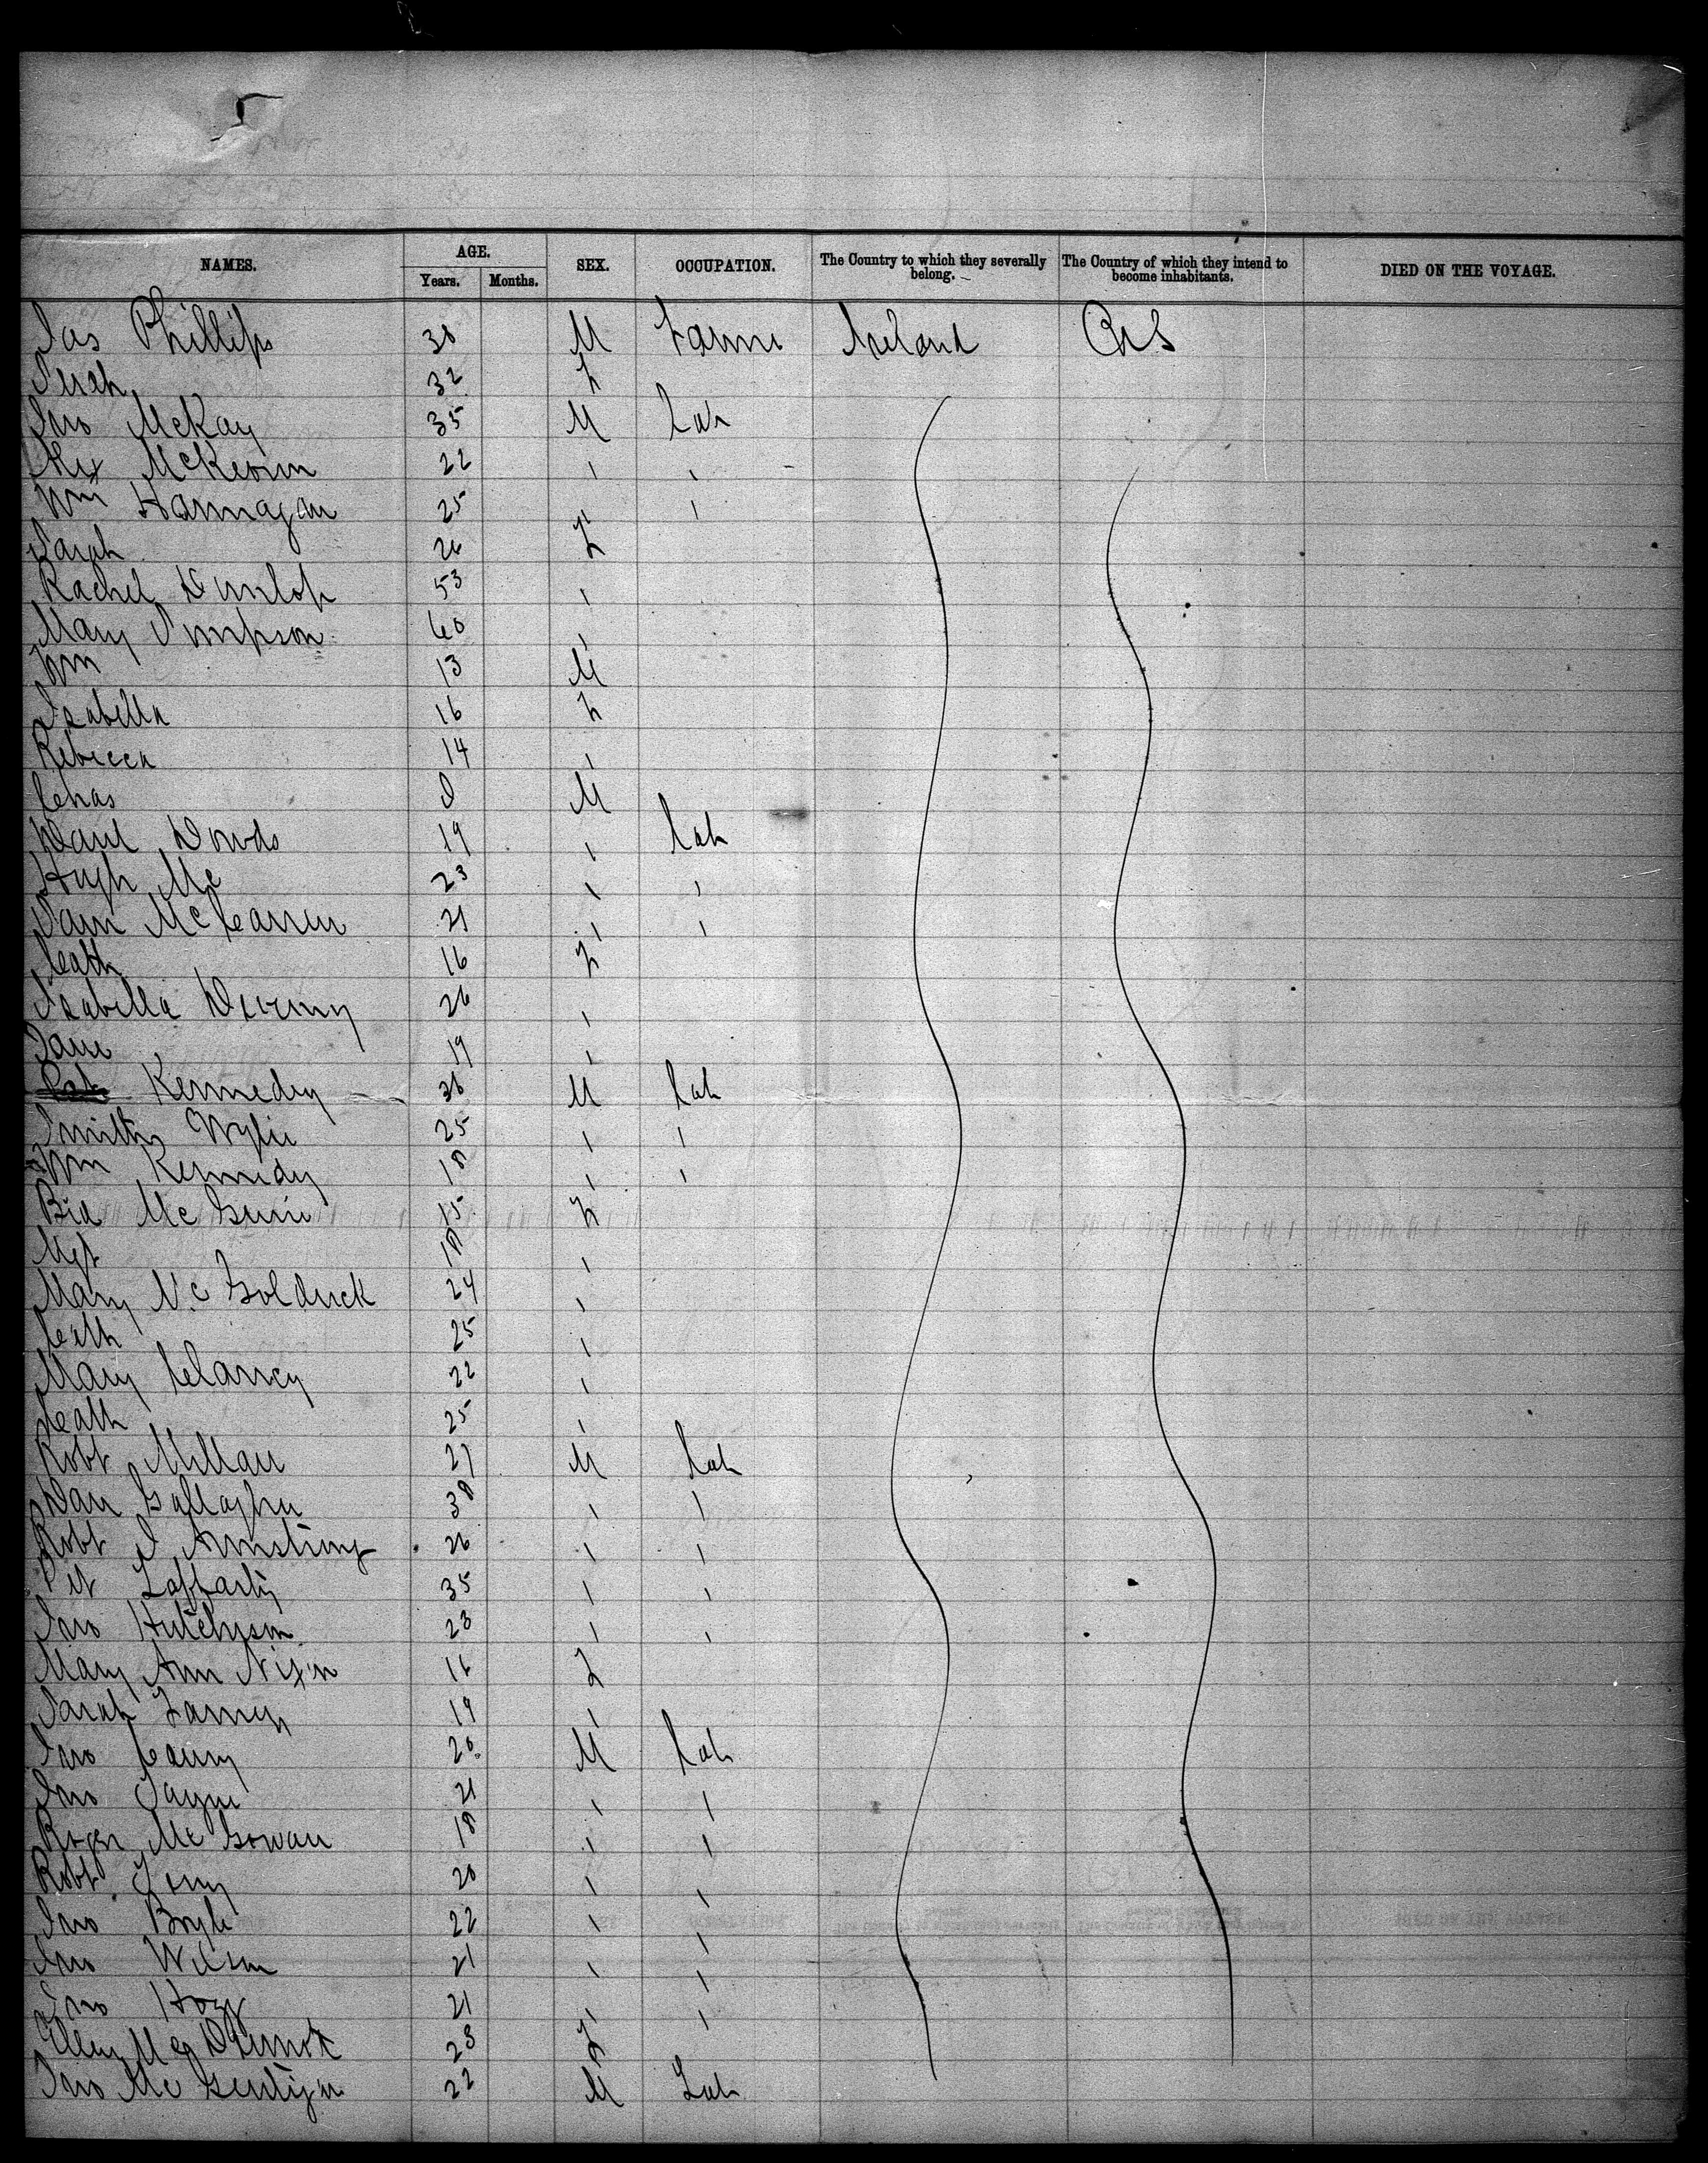 NAMES. AGE. SEX. OCCUPATION. The Country to which they severally belong. The Country of which they intend to become inhabitants. DIED ON THE VOYAGE.
Years. Months.
Jas Phillips 30 M Farmr Ireland
Sarah 32 F
Jno McKay 35 M Lab
Alex McKeown 22 " "
Wm Hannagan 25 "
Sarah 26 F
Rachel Dunlop 53 "
Mary Simpson 60 "
Wm 13 M
Isabella 16 F
Rebecca 14 "
Chas M
Danl Dowds 19 " Lab
Hugh Mc 23 " "
Sam McCarren 21 " "
Cath 16 F
Isabella Deveny 26 "
Jane 19 "
Kennedy 36 M Lab
Smith Wylie 25 " "
Wm Kennedy 18 " "
Bid McGuire 15 F
Mgt 18 "
Mary McGoldrick 24 "
Cath 25 "
Mary Clancy 22 "
Cath 25 "
Robt Millar 27 M Lab
Dan Gallagher 38 " "
Robt J Armstrong 26 " "
Pat Lafferty 35 " "
Jno Hutchison 23 " "
Mary Ann Nixon 16 F
Sarah 19 "
Jno 20 M Lab
Jno 21 " "
Roger McGowan 18 " "
Robt 20 " "
Jno Boyle 22 " "
Jno Wilson 21 " "
Jno Hogg 21 " "
Ellen McDermott 23 F
Jno 22 M Lab